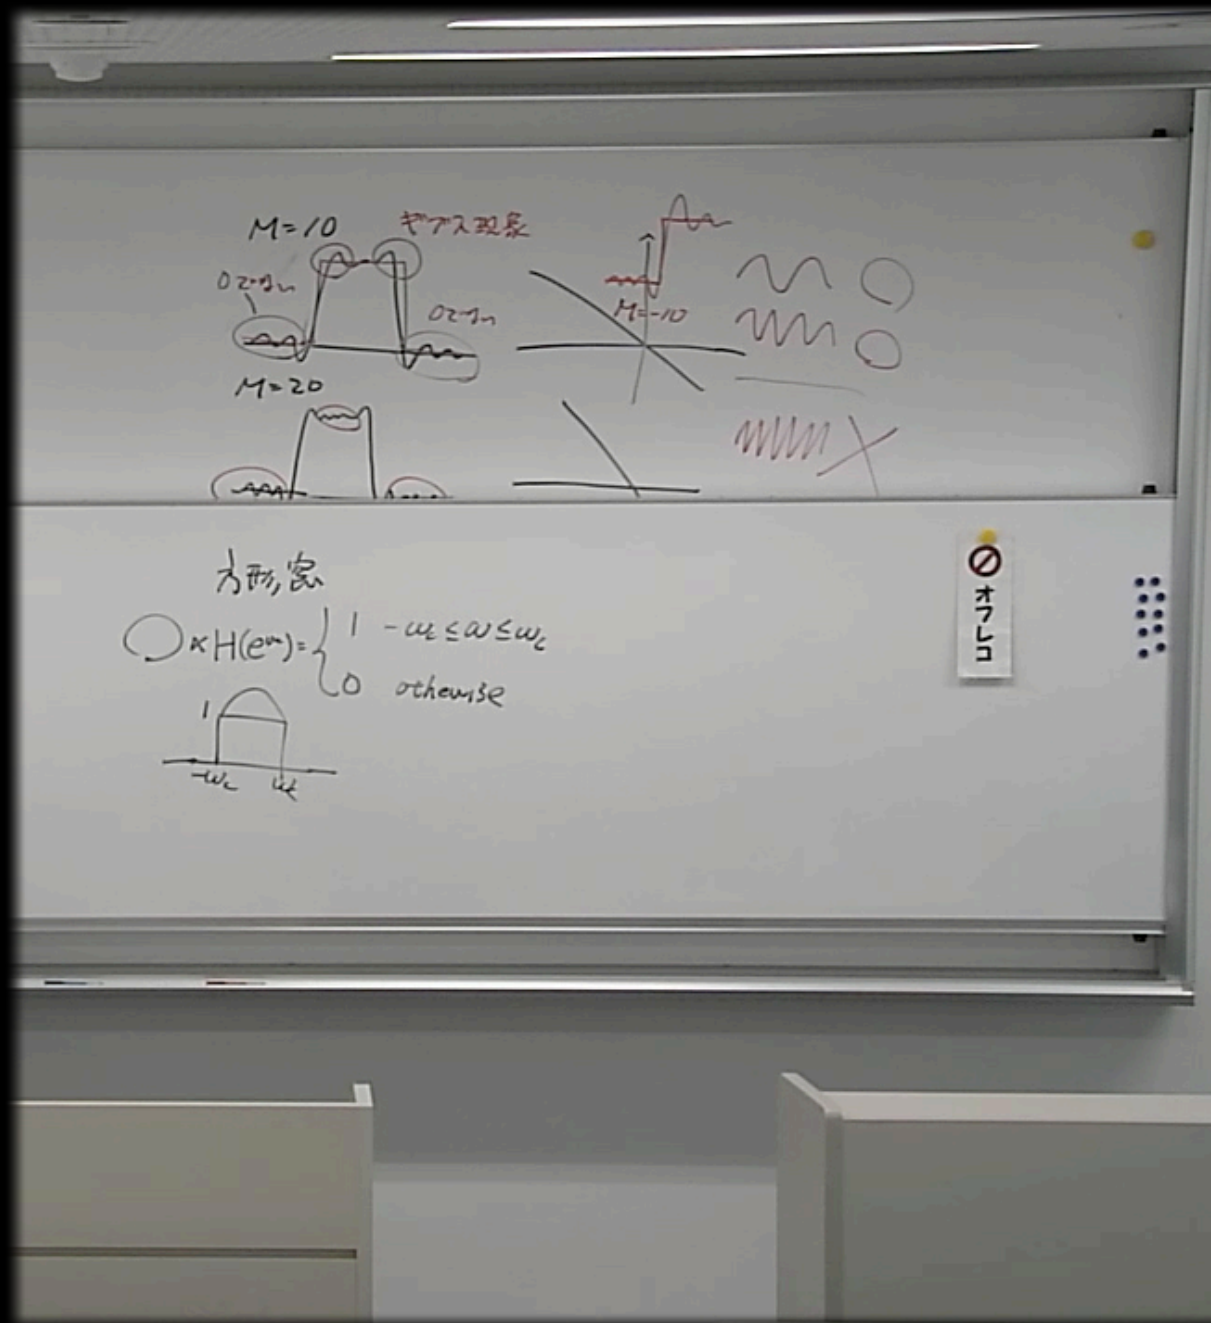 M=10
ギブス現象
0でない
0でない
M=-10
M=20
方形窓
× H(e^jω)= { 1 -ωc ≤ ω ≤ ωc
0 otherwise
1
-ωc ωc
オフレコ